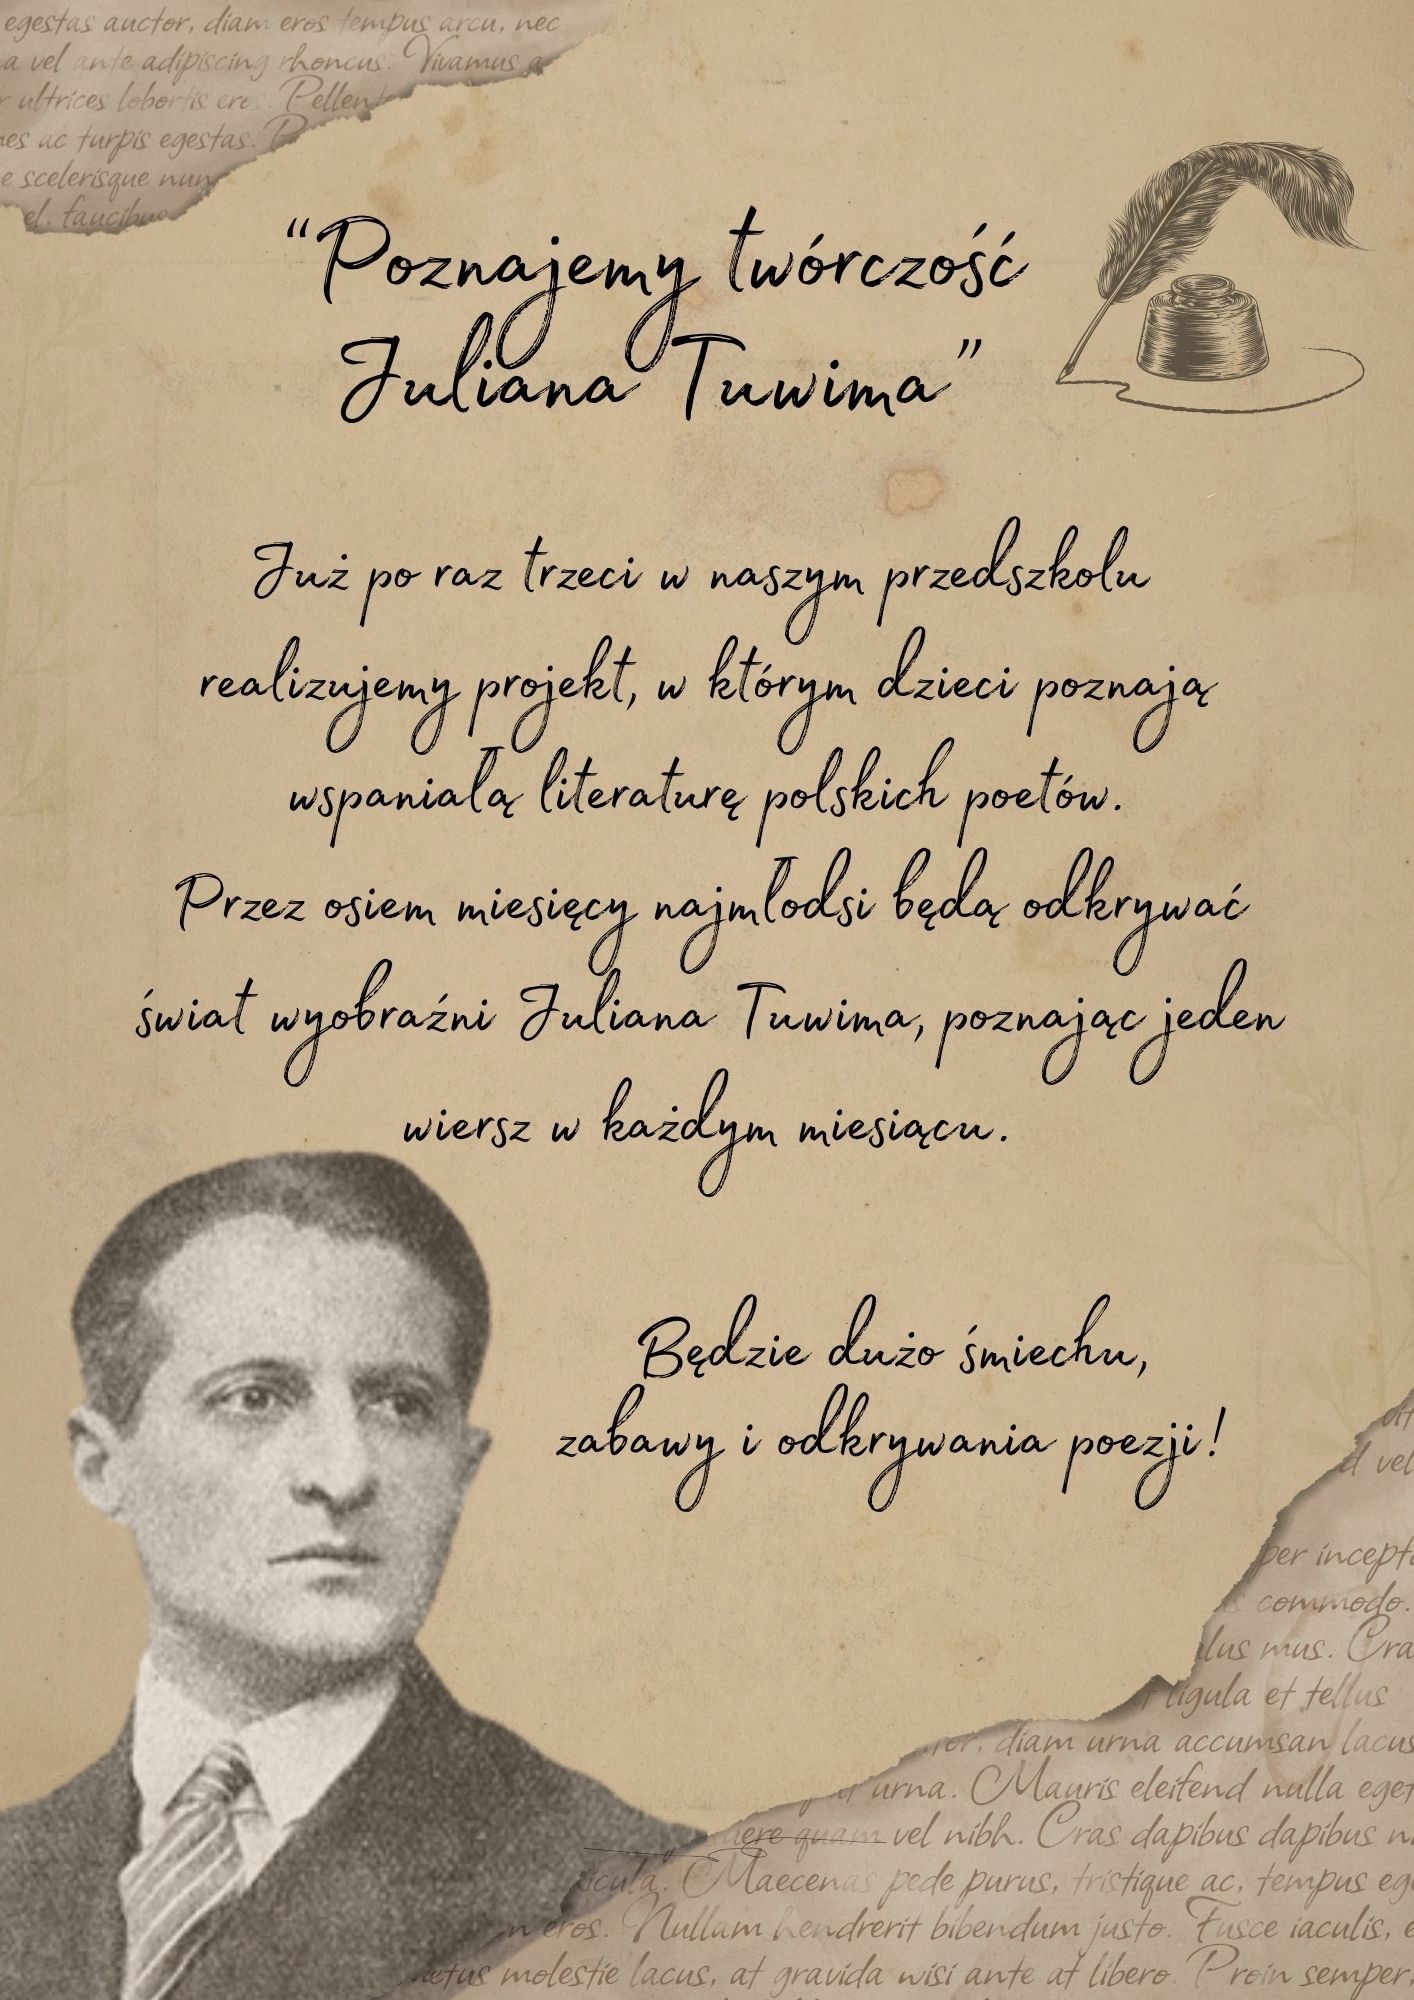 egestas auctor, diam eros tempus arcu, nec
a vel ante adipiscing rhoncus. Vivamus
ultrices lobortis eros.
ac turpis egestas.
e scelerisque
el, faucibus
“Poznajemy twórczość
Juliana Tuwima”
Już po raz trzeci w naszym przedszkolu
realizujemy projekt, w którym dzieci poznają
wspaniałą literaturę polskich poetów.
Przez osiem miesięcy najmłodsi będą odkrywać
świat wyobraźni Juliana Tuwima, poznając jeden
wiersz w każdym miesiącu.
Będzie dużo śmiechu,
zabawy i odkrywania poezji!
d vel
per
commodo.
mus.
ligula et tellus
diam urna accumsan lacus
urna. Mauris eleifend nulla eget
quam vel nibh. Cras dapibus dapibus
Maecenas pede purus, tristique ac, tempus
eros. Nullam hendrerit bibendum justo. Fusce iaculis,
molestie lacus, at gravida wisi ante at libero. Proin semper,